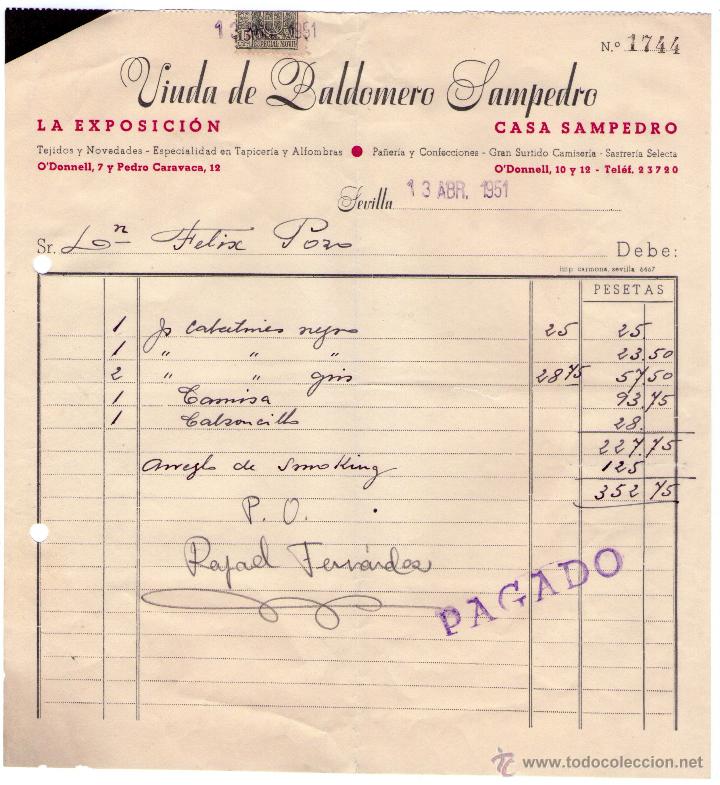 13 ABR. 1951
15 ESPECIAL MOVIL
N.º 1744
Viuda de Baldomero Sampedro
LA EXPOSICIÓN CASA SAMPEDRO
Tejidos y Novedades - Especialidad en Tapicería y Alfombras ● Pañería y Confecciones - Gran Surtido Camisería - Sastrería Selecta
O'Donnell, 7 y Pedro Caravaca, 12 O'Donnell, 10 y 12 - Teléf. 23720
Sevilla 13 ABR. 1951
Sr. Dn Felix Pozo Debe:
imp. carmona. sevilla 6467
PESETAS
1 pr Calcetines negro 25 25
1 " " " 23.50
2 " " gris 2875 57.50
1 Camisa 93.75
1 Calzoncillo 28.
227.75
Arreglo de smoking 125
352 75
P. O.
Rafael Fernández
PAGADO
www.todocoleccion.net